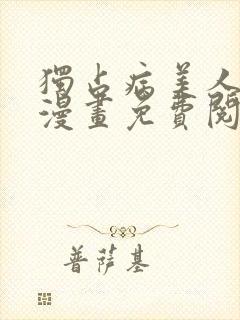 獨占病美人
漫畫免費閱
普薩基